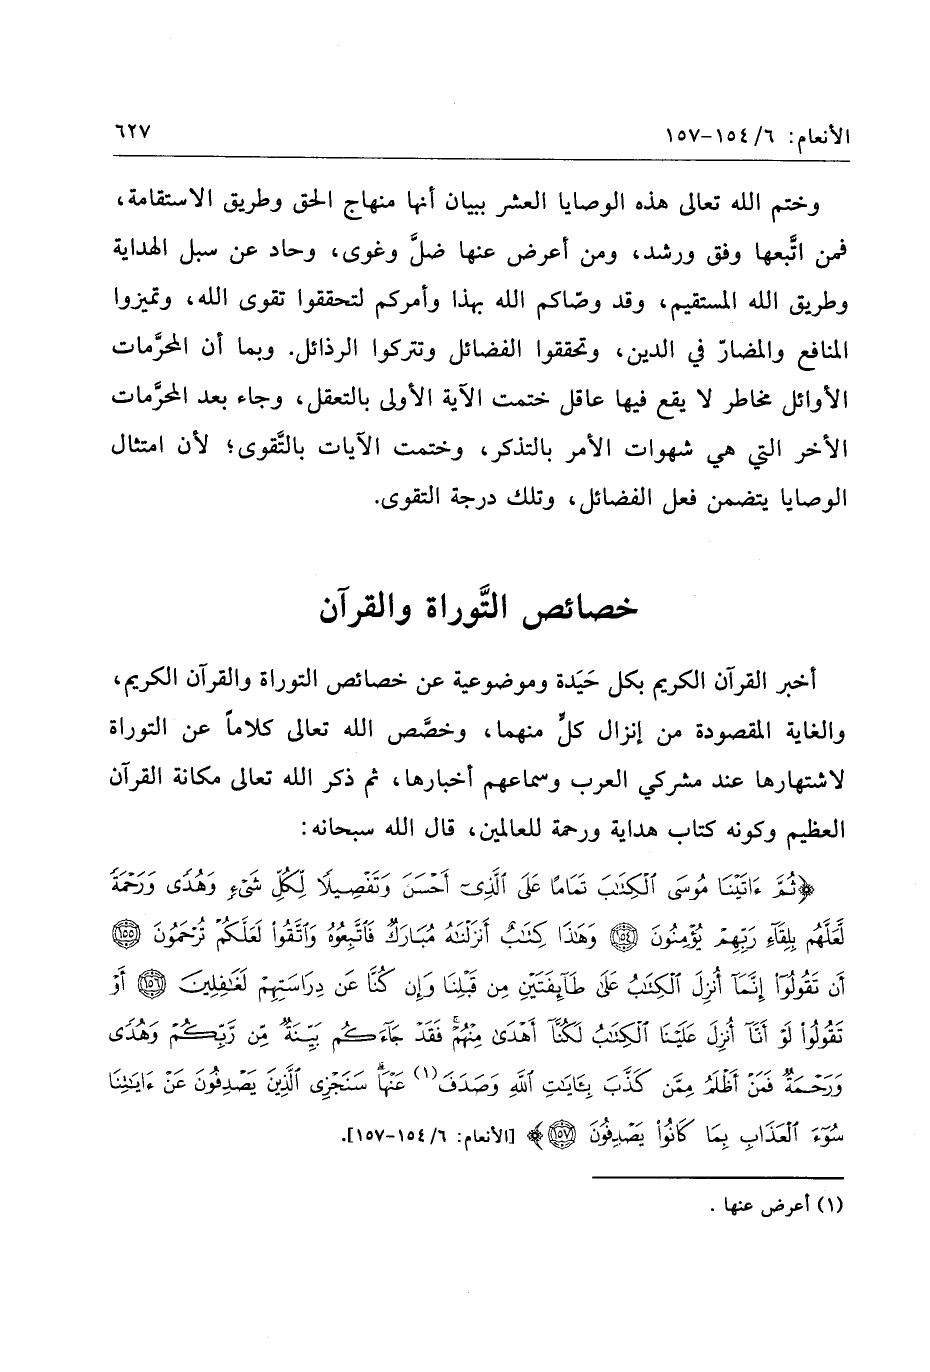 الأنعام: ٦/ ١٥٤-١٥٧
٦٢٧
وختم الله تعالى هذه الوصايا العشر ببيان أنها منهاج الحق وطريق الاستقامة،
فمن اتَّبعها وفق ورشد، ومن أعرض عنها ضلَّ وغوى، وحاد عن سبل الهداية
وطريق الله المستقيم، وقد وصّاكم الله بهذا وأمركم لتحققوا تقوى الله، وتميزوا
المنافع والمضارّ في الدين، وتحققوا الفضائل وتتركوا الرذائل. وبما أن المحرَّمات
الأوائل مخاطر لا يقع فيها عاقل ختمت الآية الأولى بالتعقل، وجاء بعد المحرَّمات
الأخر التي هي شهوات الأمر بالتذكر، وختمت الآيات بالتَّقوى؛ لأن امتثال
الوصايا يتضمن فعل الفضائل، وتلك درجة التقوى.
خصائص التَّوراة والقرآن
أخبر القرآن الكريم بكل حَيَدة وموضوعية عن خصائص التوراة والقرآن الكريم،
والغاية المقصودة من إنزال كلٍّ منهما، وخصَّص الله تعالى كلاماً عن التوراة
لاشتهارها عند مشركي العرب وسماعهم أخبارها، ثم ذكر الله تعالى مكانة القرآن
العظيم وكونه كتاب هداية ورحمة للعالمين، قال الله سبحانه:
﴿ثُمَّ ءَاتَيْنَا مُوسَى ٱلْكِتَٰبَ تَمَامًا عَلَى ٱلَّذِىٓ أَحْسَنَ وَتَفْصِيلًا لِّكُلِّ شَىْءٍ وَهُدًى وَرَحْمَةً
لَّعَلَّهُم بِلِقَآءِ رَبِّهِمْ يُؤْمِنُونَ ١٥٤ وَهَٰذَا كِتَٰبٌ أَنزَلْنَٰهُ مُبَارَكٌ فَٱتَّبِعُوهُ وَٱتَّقُوا۟ لَعَلَّكُمْ تُرْحَمُونَ ١٥٥
أَن تَقُولُوٓا۟ إِنَّمَآ أُنزِلَ ٱلْكِتَٰبُ عَلَىٰ طَآئِفَتَيْنِ مِن قَبْلِنَا وَإِن كُنَّا عَن دِرَاسَتِهِمْ لَغَٰفِلِينَ ١٥٦ أَوْ
تَقُولُوا۟ لَوْ أَنَّآ أُنزِلَ عَلَيْنَا ٱلْكِتَٰبُ لَكُنَّآ أَهْدَىٰ مِنْهُمْ ۚ فَقَدْ جَآءَكُم بَيِّنَةٌ مِّن رَّبِّكُمْ وَهُدًى
وَرَحْمَةٌ ۚ فَمَنْ أَظْلَمُ مِمَّن كَذَّبَ بِـَٔايَٰتِ ٱللَّهِ وَصَدَفَ(١) عَنْهَا ۗ سَنَجْزِى ٱلَّذِينَ يَصْدِفُونَ عَنْ ءَايَٰتِنَا
سُوٓءَ ٱلْعَذَابِ بِمَا كَانُوا۟ يَصْدِفُونَ ١٥٧﴾ [الأنعام: ٦/ ١٥٤-١٥٧].
(١) أعرض عنها .